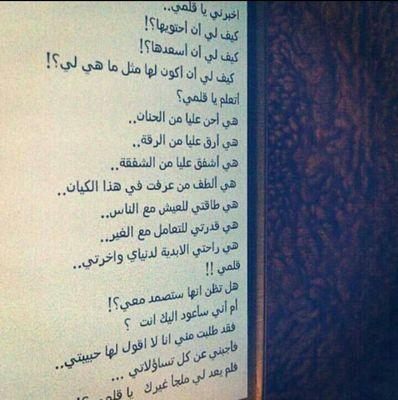 اخبرني يا قلمي..
كيف لي أن أحتويها؟!
كيف لي أن أسعدها؟!
كيف لي أن أكون لها مثل ما هي لي؟!
أتعلم يا قلمي؟
هي أحن عليا من الحنان..
هي أرق عليا من الرقة..
هي أشفق عليا من الشفقة..
هي ألطف من عرفت في هذا الكيان..
هي طاقتي للعيش مع الناس..
هي قدرتي للتعامل مع الغير..
هي راحتي الابدية لدنياي واخرتي..
قلمي !!
هل تظن انها ستصمد معي؟!
أم أني سأعود اليك انت ؟
فقد طلبت مني انا لا اقول لها حبيبتي..
فاجبني عن كل تساؤلاتي ...
فلم يعد لي ملجأ غيرك يا قلمي